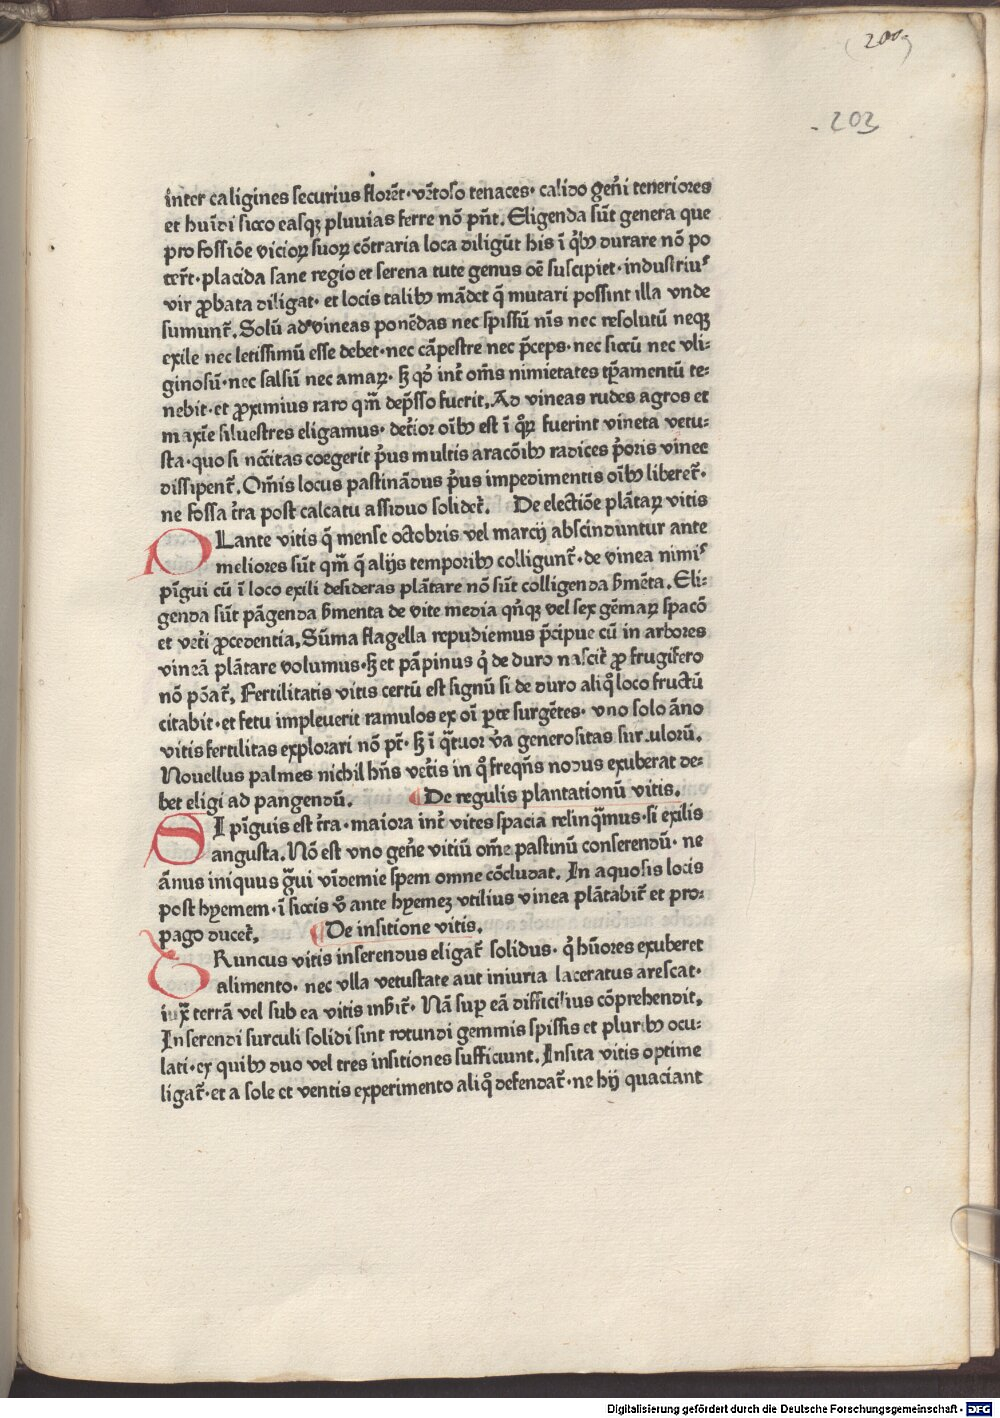 (200)
203
inter caligines securius florēt· vētoso tenaces· calido geñi teneriores
et hūidi sicco easqꝫ pluvias ferre nō pn̄t. Eligenda sūt genera que
pro fossiōe vicioꝝ suoꝝ cōtraria loca diligūt his ī qͥbꝫ durare nō po
ter̄t· placida sane regio et serena tute genus oē suscipiet· industriuˢ
vir ꝓbata diligat· et locis talibꝫ mādet q̄ mutari possint illa vnde
sumunt᷑. Solū ad vineas ponēdas nec spissū nīs nec resolutū neqꝫ
exile nec letissimū esse debet· nec cāpestre nec p̄ceps· nec siccū nec vli⸗
ginosū· nec salsū nec amaꝝ· sꝫ qͦd int᷑ om̄s nimietates tp̄amentū te⸗
nebit· et ꝓximius raro qm̄ dep̄sso fuerit. Ad vineas rudes agros et
maxīe siluestres eligamus· det᷑ior oībꝫ est ī qͦꝝ fuerint vineta vetu⸗
sta· quo si nc̄citas coegerit pͥus multis aracōibꝫ radices pͥoris vinee
dissipent᷑. Om̄is locus pastināđus pͥus impedimentis oībꝫ liberet᷑·
ne fossa t᷑ra post calcatu assiduo solidet᷑. De electiōe plātaꝝ vitis
PLante vitis q̄ mense octobris vel marcij abscinduntur ante
meliores sūt qm̄ q̄ alijs temporibꝫ colligunt᷑· de vinea nimiˢ
pīgui cū ī loco exili desideras plātare nō sūt colligenda s̄mēta. Eli⸗
genda sūt pāgenda s̄menta de vite media qn̄qꝫ vel sex gēmaꝝ spacō
et vet᷑i ꝓcedentia. Sūma flagella repudiemus p̄cipue cū in arbores
vineā plātare volumus· sꝫ et pāpinus qͥ de duro nascit᷑ ꝓ frugifero
nō pōat᷑. Fertilitatis vitis certū est signū si de duro aliqͦ loco fructū
citabit· et fetu impleuerit ramulos ex oī ꝑte surgētes· vno solo āno
vitis fertilitas explorari nō pt̄· sꝫ ī qͣtuor v̄a generositas surculorū.
Nouellus palmes nichil hn̄s vet᷑is in qͦ freqn̄s nodus exuberat de⸗
bet eligi ad pangendū. ¶De regulis plantationū vitis.
SI pīguis est t᷑ra· maiora int᷑ vites spacia relinqͣmus· si exilis
angusta. Nō est vno gen̄e vitiū om̄e pastinū conserendū· ne
ānus iniquus gͣui vīdemie spem omne cōcludat. In aquosis locis
post hyemem· ī siccis v̄o ante hyemeꝫ vtilius vinea plātabit᷑ et pro⸗
pago ducet᷑. ¶De insitione vitis.
TRuncus vitis inserendus eligat᷑ solidus· qͥ hūores exuberet
alimento· nec vlla vetustate aut iniuria laceratus arescat·
iuxͣ terrā vel sub ea vitis insit᷑. Nā suꝑ eā difficilius cōprehendit.
Inserendi surculi solidi sint rotundi gemmis spissis et pluribꝫ ocu⸗
lati· ex quibꝫ duo vel tres insitiones sufficiunt. Insita vitis optime
ligat᷑· et a sole et ventis experimento aliqͦ defendat᷑· ne hij quaciant
Digitalisierung gefördert durch die Deutsche Forschungsgemeinschaft - DFG